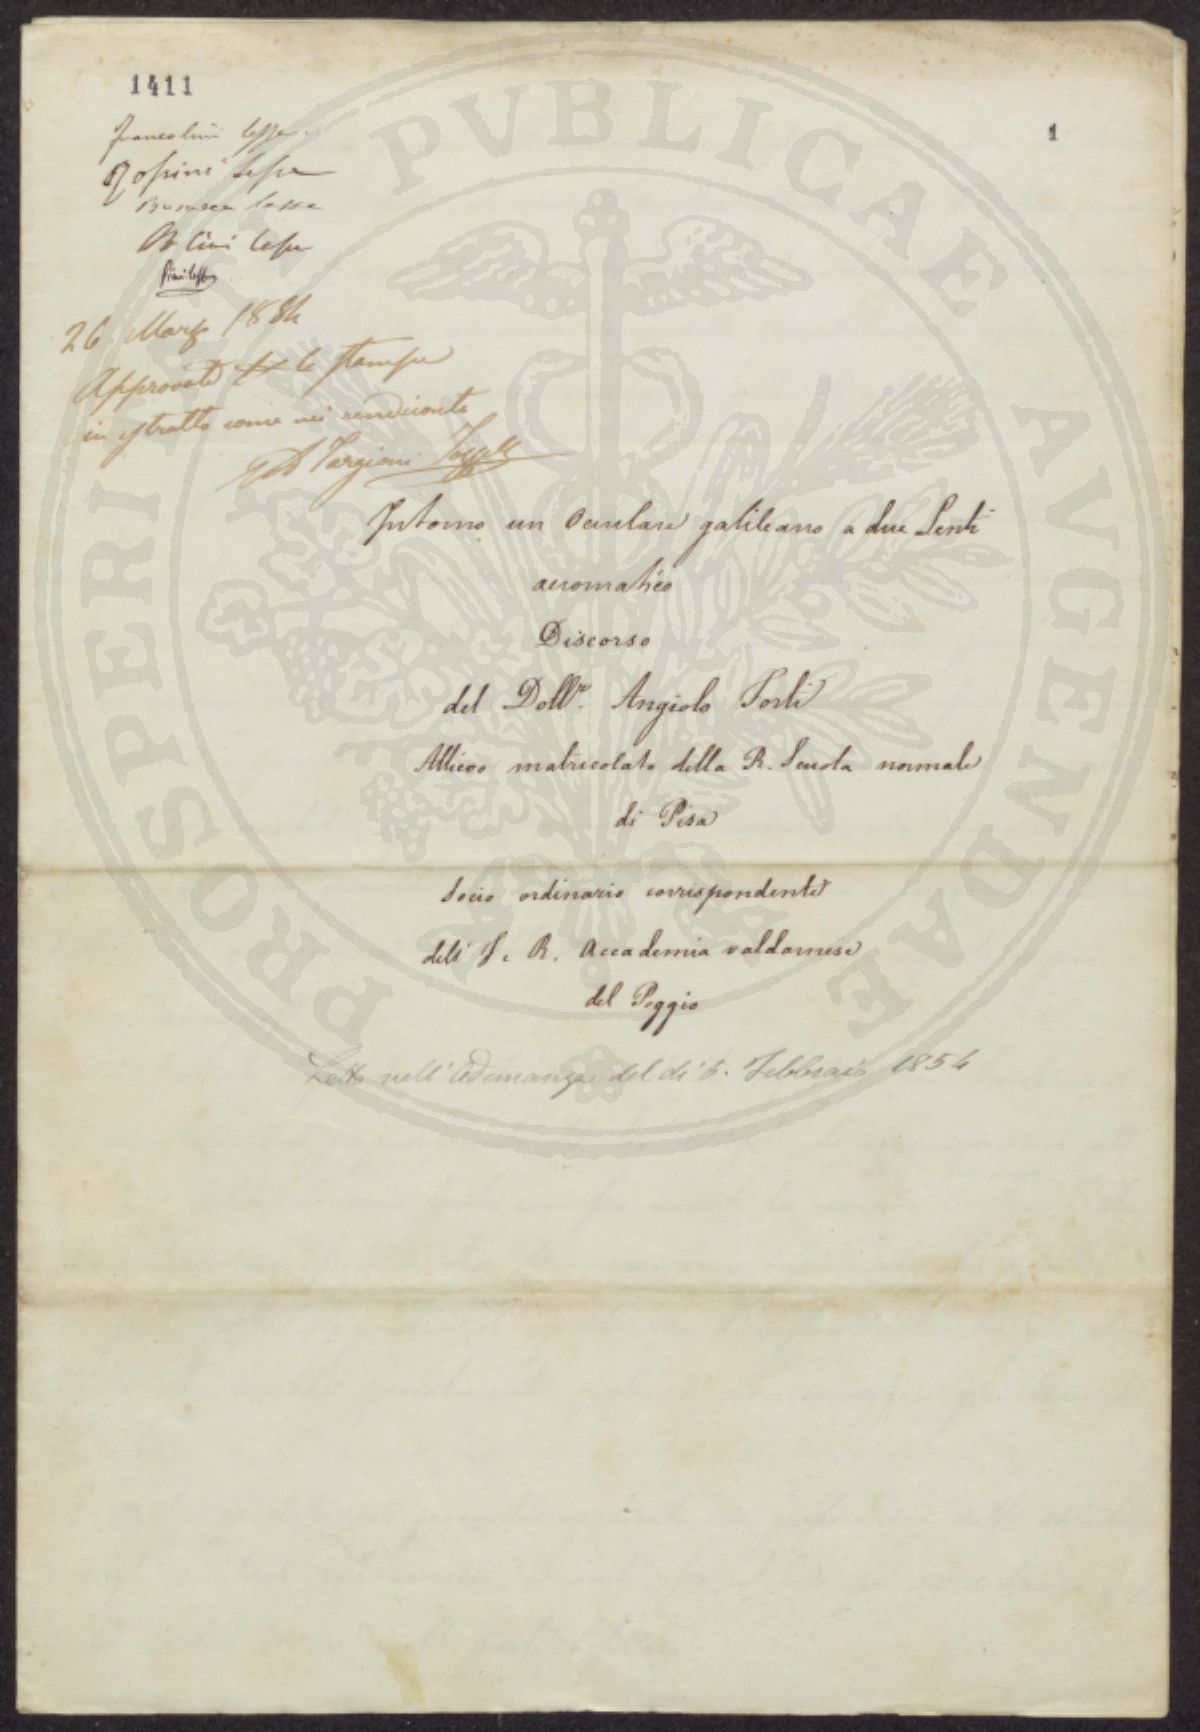 1411
1
Francolini lesse
Rossini lesse
Busacca lesse
Cini lesse
Pini lesse
26. Marzo 1854
Approvato per la stampa
in estratto come nei rendiconti
A Targioni Tozzetti
Intorno un Oculare galileano a due Lenti
acromatico
Discorso
del Dott.r Angiolo Forti
Allievo matricolato della R. Scuola normale
di Pisa
Socio ordinario corrispondente
dell' I. e R. Accademia valdarnese
del Poggio
Letto nell' Adunanza del dì 5. Febbraio 1854
PROSPERITATI PVBLICAE AVGENDAE